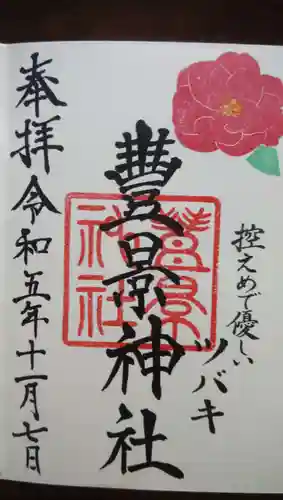 控えめで優しい
ツバキ
豊景神社
豊景
神社
奉拝 令和五年十一月七日